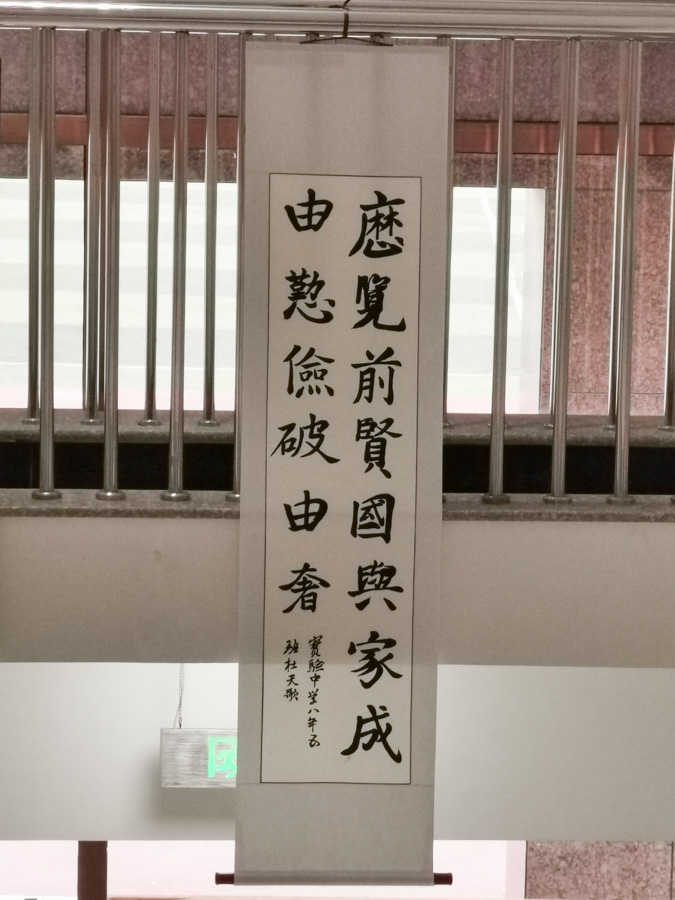 歷覽前賢國與家成
由懃儉破由奢
實驗中學八年五
班杜天歌